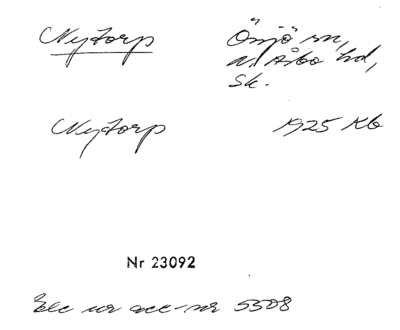 Nytorp Önjö sn,
N. Åsbo hd,
Sk.
Nytorp 1925 Kb
Nr 23092
Exc ur acc-nr 5508